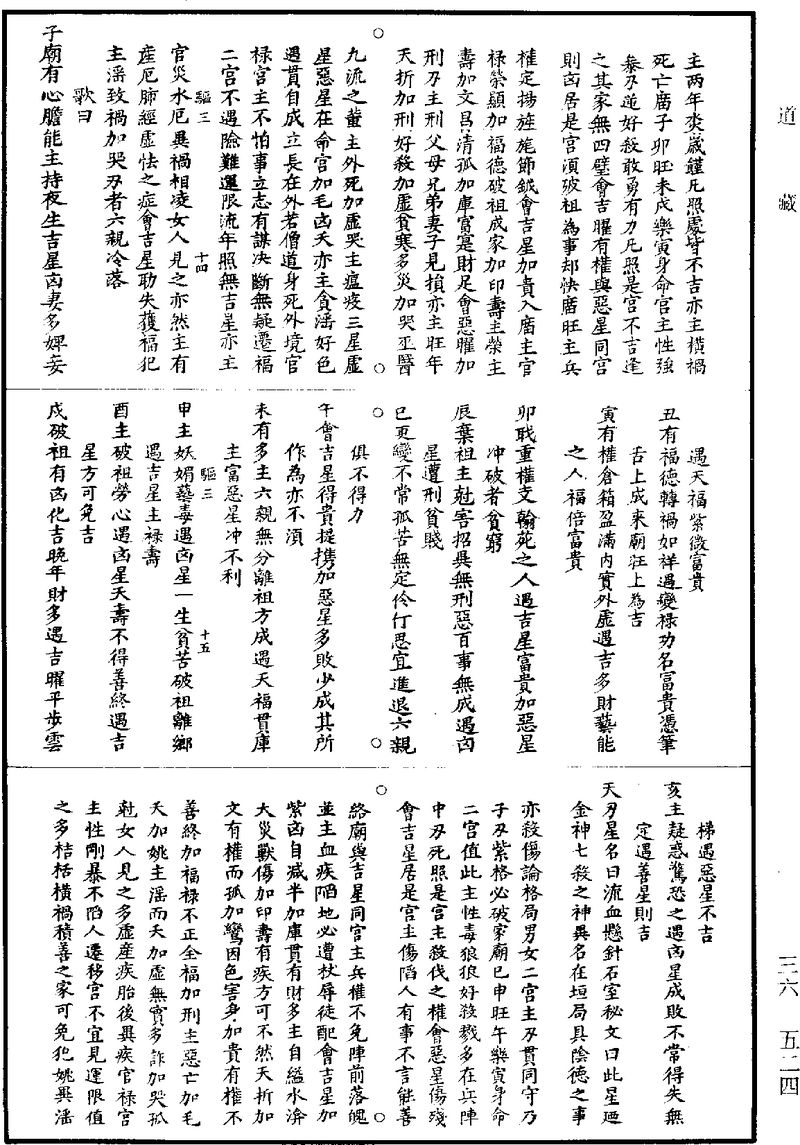 道藏
主两年灾歳饉凡照處皆不吉亦主橫禍
死亡廣子卯旺未戌樂寅身命宮主性強
暴刃並好殺敢勇有力凡照是宮不吉逢
之其家無四壁會吉曜有權與惡星同宮
則凶居是宮湏破祖為事却快廣旺主兵
權定揚旌旄節鉞會吉星加貴入廣主官
祿榮顯加福德破祖成家加印壽主榮主
壽加文昌清孤加庫富寔財足會惡曜加
刑刃主刑父母兄弟妻子見損亦主旺年
夭折加刑好殺加虛貧寒多災加哭巫醫
九流之輩主外死加虛哭主瘟疫三星虛
星惡星在命宮加毛凶夭亦主貪滛好色
遇貫自成立長在外若僧道身死外境官
祿宮主不怕事立志有謀决斷無疑遷福
二宮不遇險難運限流年照無吉星亦主
驅三
十四
官災水厄異禍相凌女人見之亦然主有
産厄肺經虛怯之症會吉星助失獲福犯
主滛致禍加哭刃者六親冷落
歌曰
子廟有心膽能主持夜生吉星凶妻多婢妾
遇天福紫微富貴
丑有福德轉禍如祥遇變祿功名富貴憑筆
舌上成來廟旺上為吉
寅有權倉箱盈滿内實外虛遇吉多財藝能
之人福倍富貴
卯戰重權文翰苑之人遇吉星富貴加惡星
冲破者貧窮
辰棄祖主尅害招異無刑惡百事無成遇凶
星遭刑貧賤
巳更變不常孤苦無定伶仃思宜進退六親
俱不得力
午會吉星得貴提携加惡星多敗少成其所
作為亦不湏
未有多主六親無分離祖方成遇天福貫庫
主富惡星冲不利
驅三
十五
申主妖媚藝毒遇凶星一生貧苦破祖離鄉
遇吉星主祿壽
酉主破祖勞心遇凶星夭壽不得善終遇吉
星方可免吉
戌破祖有凶化吉晚年財多遇吉曜平步雲
梯遇惡星不吉
亥主疑惑驚恐之遇凶星成敗不常得失無
定遇善星則吉
天刃星名曰流血懸針石室秘文曰此星廼
金神七殺之神異名在垣局具陰德之事
亦殺傷論格局男女二宮主刃貫同守乃
子刃紫格必破家廟巳申旺午樂寅身命
二宮值此主性毒狼狼好殺戮多在兵陣
中刃死照是宮主殺伐之權會惡星傷殘
會吉星居是宮主傷陷人有事不言能善
絡廟與吉星同宮主兵權不免陣前落魄
並主血疾陷地必遭杖辱徒配會吉星加
紫凶自減半加庫貫有財多主自縊水渰
大災獸傷加印壽有疾方可不然夭折加
文有權而孤加鸞因色害身加貴有權不
善終加福祿不正全福加刑主惡亡加毛
夭加姚主滛而夭加虛無實多詐加哭孤
尅女人見之多虛産疾胎後異疾官祿宮
主性剛暴不陷人遷移宮不宜見運限值
之多桔枯橫禍積善之家可免犯姚異滛
三六
五二四